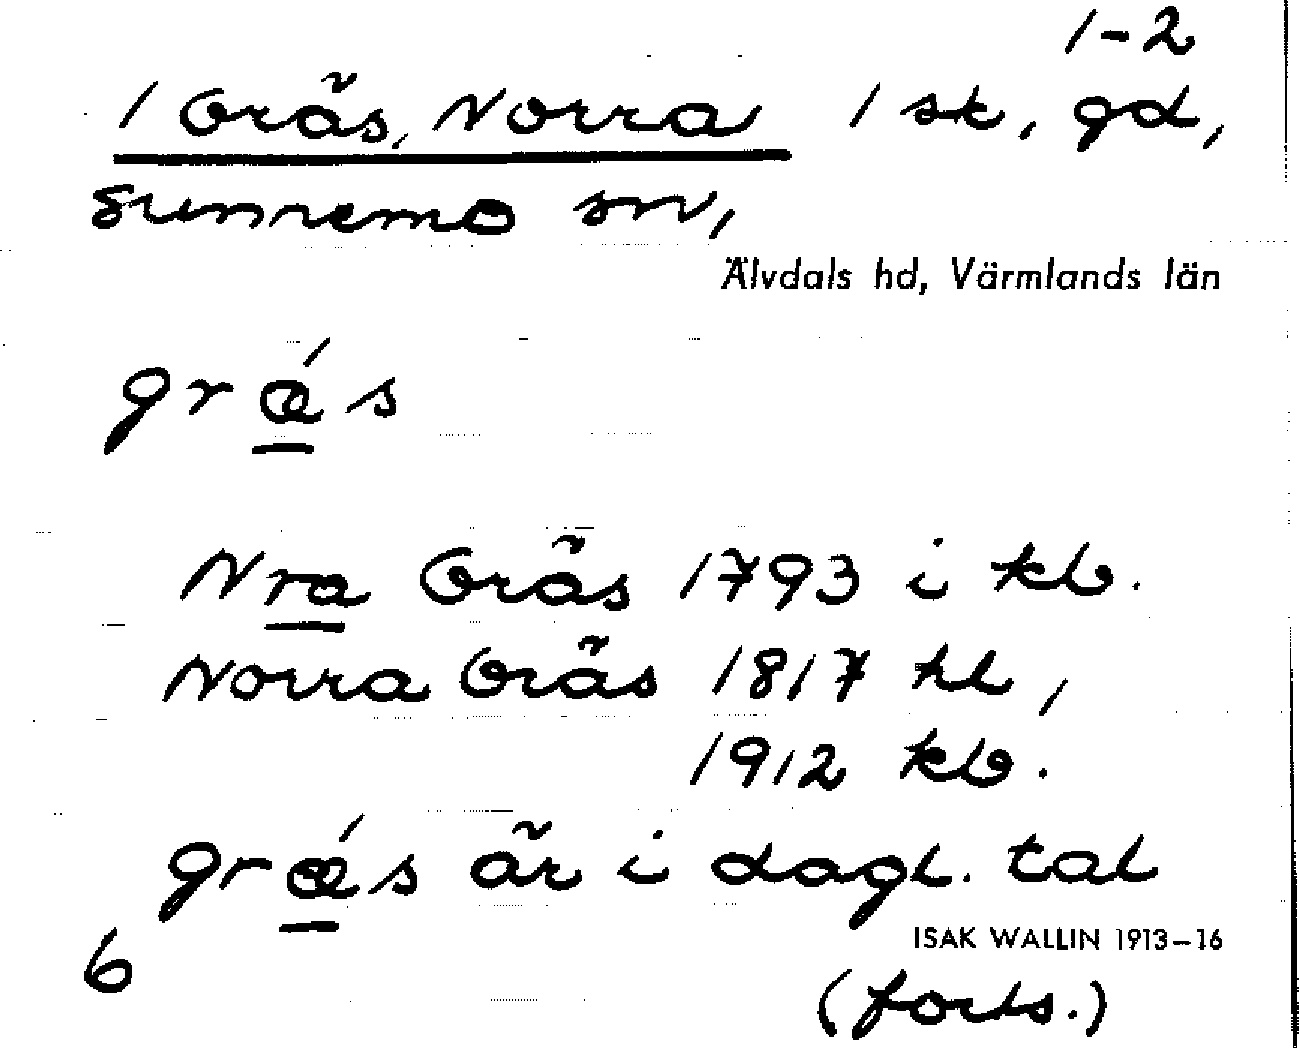 1-2
1 Gräs, Norra 1 sk, gd,
Sunnemo sn,
Älvdals hd, Värmlands län
græ´s
Nra Gräs 1793 i kb.
Norra Gräs 1817 hl,
1912 kb.
græ´s är i dagl. tal
ISAK WALLIN 1913–16
6
(forts.)